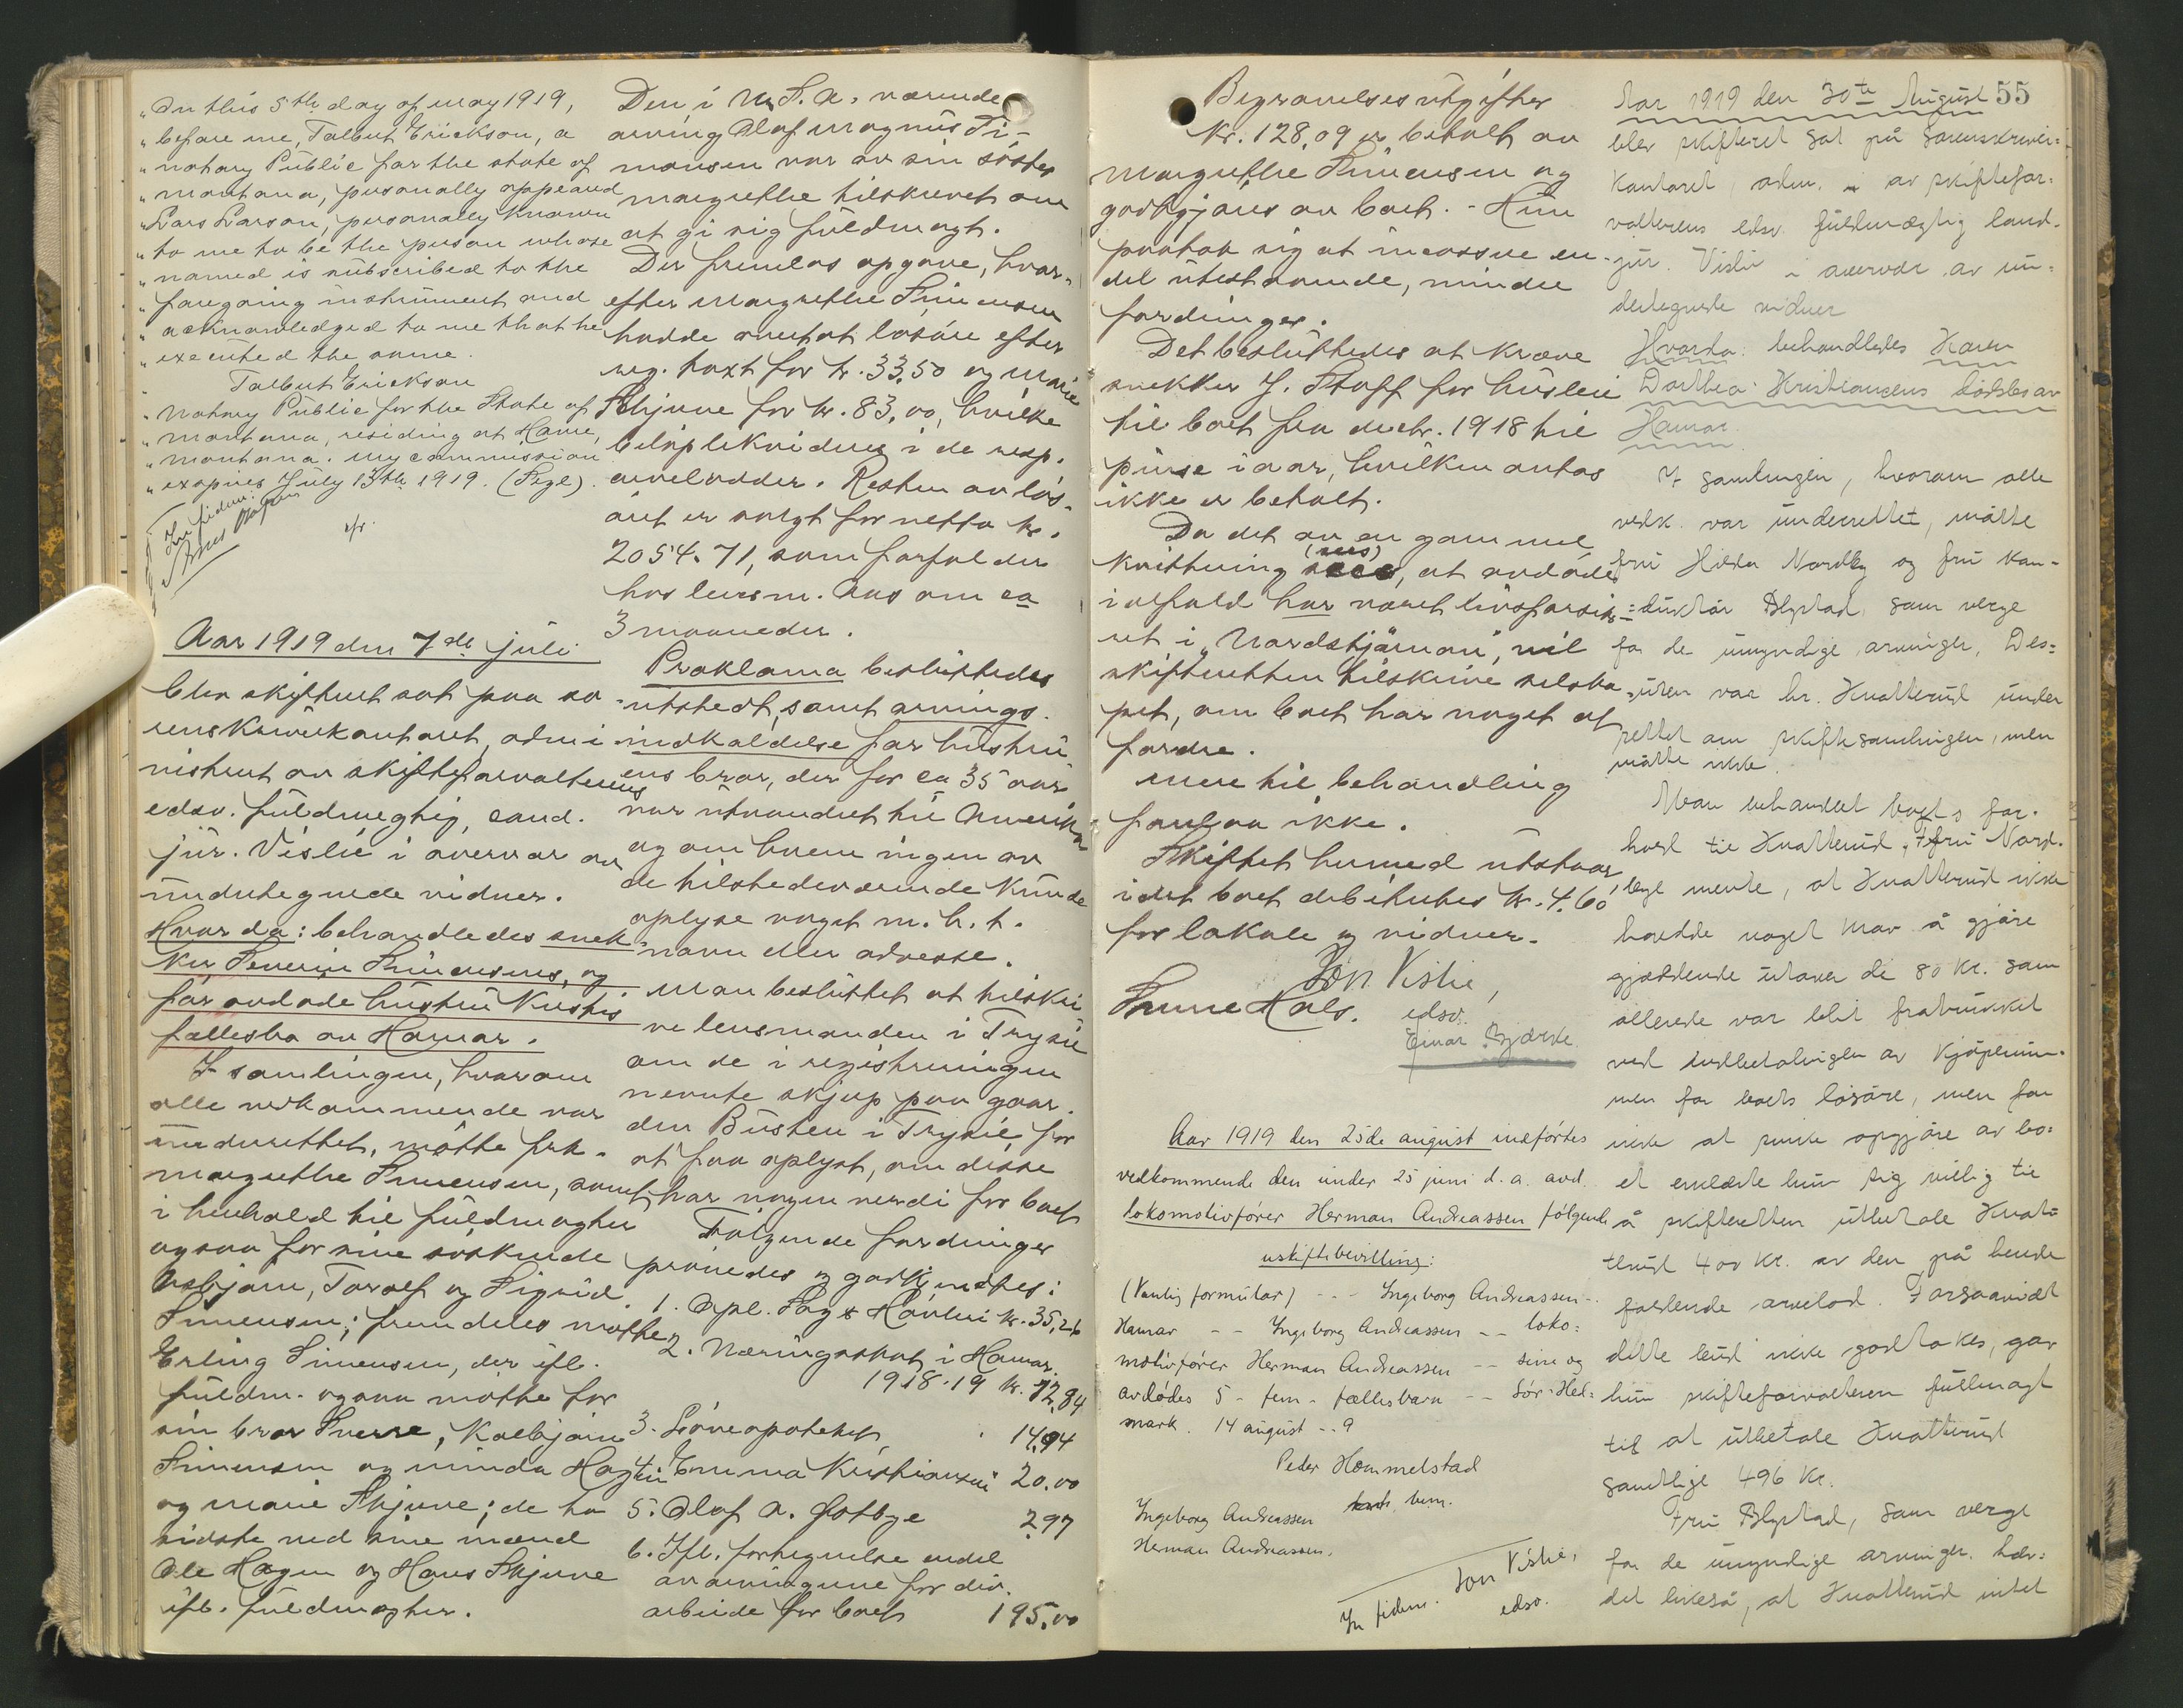 „On this 5th day of may 1919,
„before me, Talbut Erickson, a
„notary Public for the state of
„montana, personally appeared
„Lars Larson, personally known
„to me to be the person whose
„named is subscribed to the
„foregoing instrument and
„acknowledged to me that he
„executed the same.
Talbut Erickson
„Notary Public for the State of
„montana, residing at Havre,
„montana. my commission
„expires July 13th 1919. (Segl).
In fidem:
Aar 1919 den 7de juli
blev skifteret sat paa so-
renskriverkontoret, admi-
nistrert av skifteforvalterens
edsv. fuldmegtig, cand.
jur. Vislie i overvær av
undertegnede vidner.
Hvor da: behandledes snek-
ker Severin Simensens, og
før avdøde hustru Kristis
fællesbo av Hamar.
I samlingen, hvorom
alle vedkommende var
underrettet, møtte frk.
Margrethe Simensen, samt
i henhold til fuldmagter
ogsaa for sine søskende
Asbjørn, Torolf og Sigrid
Simensen; fremdeles møtte
Erling Simensen, der ifl.
fuldm. ogsaa møtte for
sin bror Sverre, Kolbjørn
Simensen og Minda Hagen
og Marie Skjune; de to
sidste ved sine mænd
Ole Hagen og Hans Skjune
ifl. fuldmagter.
Den i U.S.A. værende
arving Olaf Magnus Si-
mensen var av sin søster
Margrethe tilskrevet om
at gi sig fuldmagt.
Der fremlas opgave, hvor-
efter Margrethe Simensen
hadde mottat løsøre efter
reg. taxt for kr. 33,50 og Marie
Skjune for kr. 83,00, hvilke
beløp likvideres i de resp.
arvelodder. Resten av løs-
øret er solgt for netto kr.
2054.71, som forfalder
hos lensm. Aas om ca
3 maaneder.
Proklama besluttedes
utstedt, samt arvings-
indkaldelse for hustru-
ens bror, der for ca 35 aar
var utvandret til Amerika
og om hvem ingen av
de tilstedeværende kunde
oplyse noget m.h.t.
navn eller adresse.
Man besluttet at tilskri-
ve lensmanden i Trysil
om de i registreringen
nevnte skjøp paa gaar-
den Busten i Trysil, for
at faa oplyst, om disse
har nogen verdi for boet
Følgende fordringer
prøvedes og godkjendtes:
1. Opl. Sag & Høvleri kr. 35,26
2. Næringsskat i Hamar
1918-19 kr. 72,84
3. Løveapoteket 14,94
4. Emma Kristiansen 20.00
5. Olaf A. Fotbye 2.97
6. Ifl. fortegnelse endel
av arvingerne for div.
arbeide for boet 195,00
Begravelsesutgifter
kr. 128,09 er betalt av
Margrethe Simensen og
godtgjøres av boet. - Hun
paatok sig at incassere en-
del utestaaende, mindre
fordringer.
Det besluttedes at kræve
snekker J. Stoff for husleie
til boet fra decbr. 1918 til
pinse i aar, hvilken antas
ikke er betalt.
Da det av en gammel
kvittering (sees), at avdøde
ialfald har været livsforsik-
ret i „Nordstjärnan", vil
skifteretten tilskrive selska-
pet, om boet har noget at
fordre.
Mere til behandling
forelaa ikke.
Skiftet hermed utstaar,
idet boet debiteres kr. 4.60
for lokale og vidner.
Jon Vislie,
edsv.
Simme Hals.
Einar Bjørke
Aar 1919 den 25de august indførtes
vedkommende den under 25 juni d.a. avd.
lokomotivfører Herman Andreassen følgende
uskiftebevilling:
(Vanlig formular) - - - Ingeborg Andreassen - -
Hamar - - Ingeborg Andreassen - - loko-
motivfører Herman Andreassen - - sine og
avdødes 5 - fem - fællesbarn - - Sør-Hed-
mark. 14 august - - 9
Peder Hommelstad
Ingeborg Andreassen
Herman Andreassen.
In fidem. Jon Vislie,
edsv.
55
Aar 1919 den 30te August
blev skifteret sat på sorenskriver-
kontoret, adm. av skiftefor-
valterens edsv. fuldmægtig cand.
jur. Vislie i overvær av un-
dertegnede vidner
Hvorda: behandledes Karen
Dorthea Kristiansens dødsbo av
Hamar.
I samlingen, hvorom alle
vedk. var underrettet, møtte
fru Hilda Nordby og fru kon-
duktør Blystad, som verge
for de umyndige arvinger, Des-
uten var hr. Knatterud under
rettet om skiftesamlingen, men
møtte ikke.
Man behandlet boets for-
hold til Knatterud, Fru Nord-
bye mente, at Knatterud ikke
havdde noget krav å gjøre
gjældende utover de 80 kr. som
allerede var blit fratrukket
ved indbetalingen av kjøpesum-
men for boets løsøre, men for
ikke at sinke opgjøre av bo-
et erklærte hun sig villig til
å skifteretten utbetale Knat-
terud 400 kr. av den på hende
faldende arvelod. Forsaavidt
dette bud ikke godtokes, gav
hun skifteforvalteren fullmagt
til at utbetale Knatterud
samtlige 496 Kr.
Fru Blystad, som verge
for de umyndige arvinger, hæv-
det likeså, at Knatterud intet